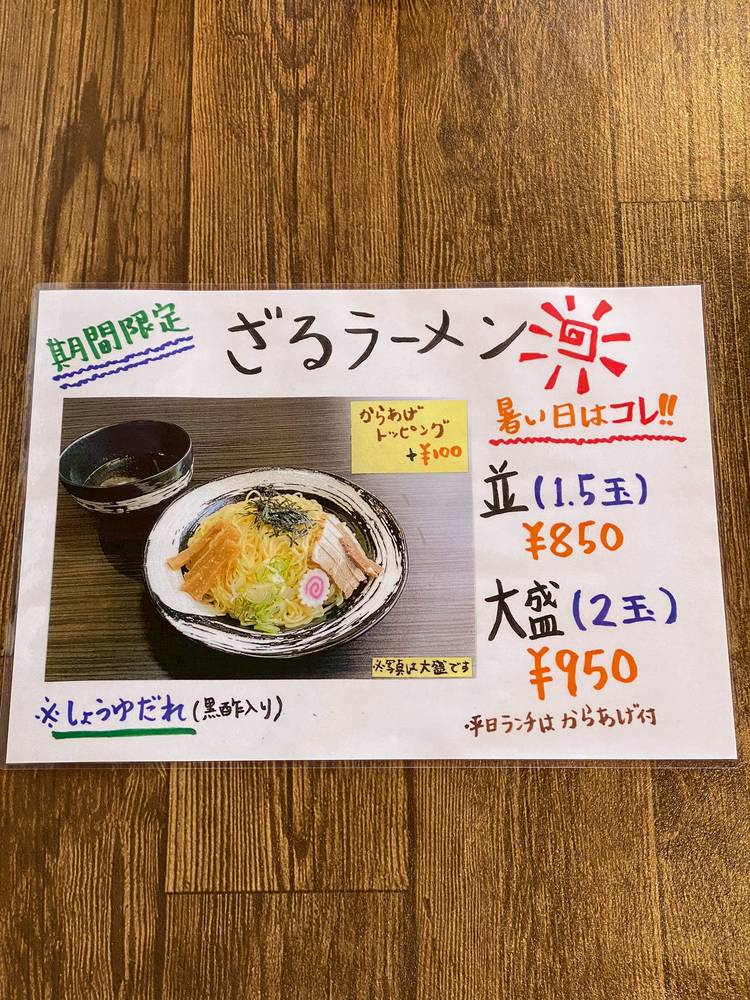 期間限定
ざるラーメン
暑い日はコレ!!
からあげ
トッピング
+¥100
並(1.5玉)
¥850
大盛(2玉)
¥950
※写真は大盛です
※しょうゆだれ(黒酢入り)
・平日ランチはからあげ付